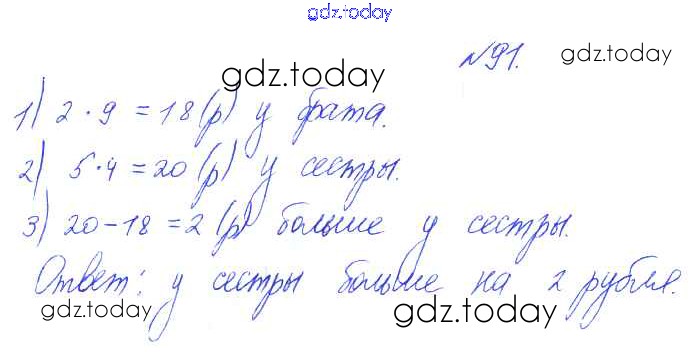 gdz.today
№91. gdz.today
gdz.today
1) 2 · 9 = 18 (р) у брата.
2) 5 · 4 = 20 (р) у сестры.
gdz.today
3) 20 - 18 = 2 (р) больше у сестры.
Ответ: у сестры больше на 2 рубля.
gdz.today
gdz.today